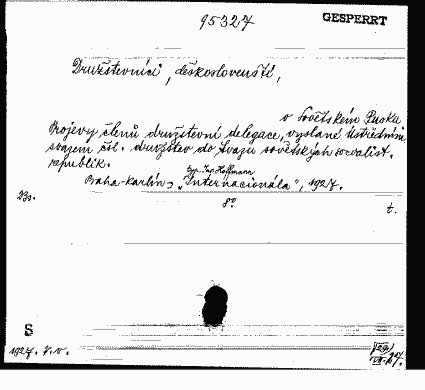 95327
GESPERRT
Družstevníci, českoslovenští,
o Sovětském Rusku
Projevy členů družstevní delegace, vyslané Ústředním
svazem čsl. družstev do Svazu sovětských socialist.
republik.
typ. Jos. Hoffmann
Praha-Karlín, „Internacionála", 1927.
23s.
8°
t.
S
1927. P.v.